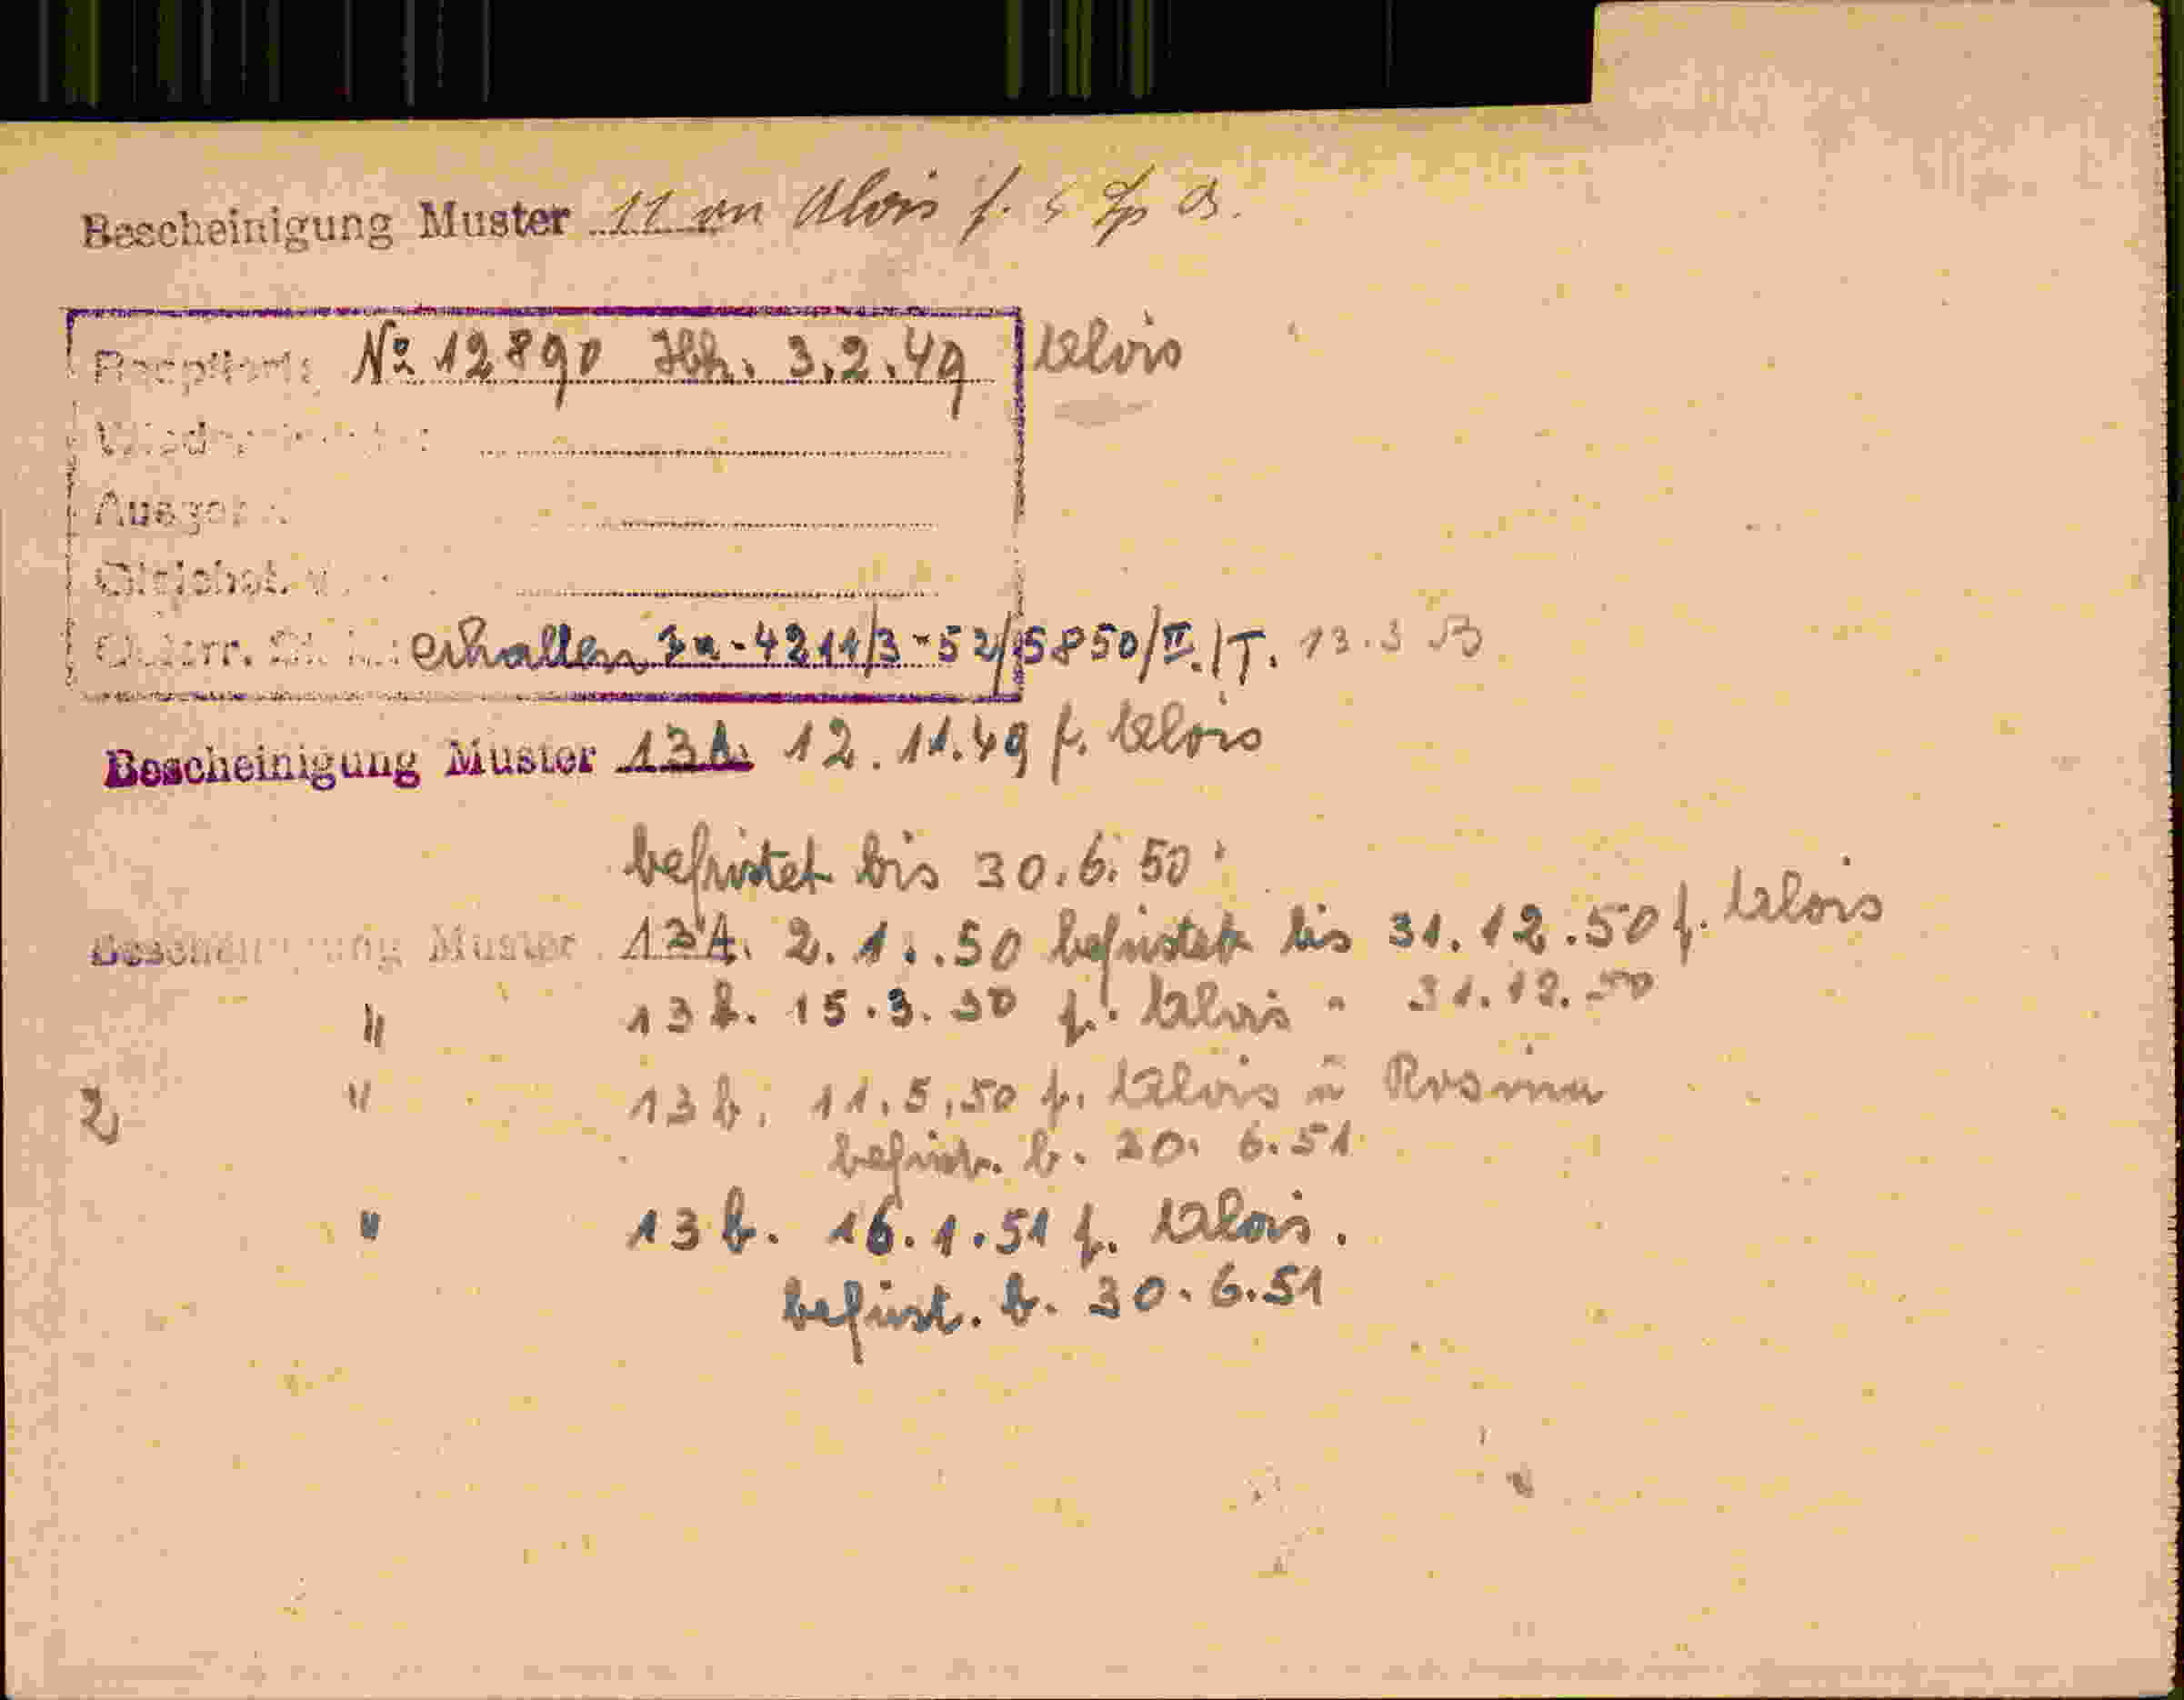 Bescheinigung Muster 11 an Alois f.
№ 12890 Hh. 3.2.49 Alois
Ausger
Gleichst.
Österr. St. erhalten Za-4211/3-52/5850/II./T. 13.3
Bescheinigung Muster 13b. 12.11.49 f. Alois
befristet bis 30.6.50
Bescheinigung Muster 13A. 2.1.50 befristet bis 31.12.50 f. Alois
" 13b. 15.3.50 f. Alois " 31.12.50
2) " 13b. 11.5.50 f. Alois u Rosina
befrist. b. 30.6.51
" 13b. 16.1.51 f. Alois.
befrist. b. 30.6.51